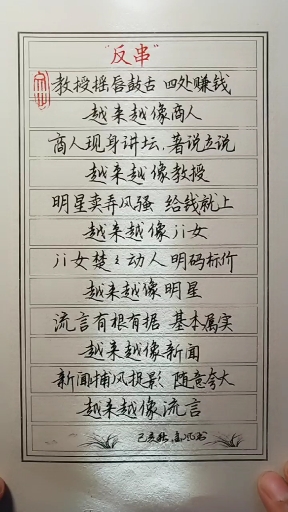 "反串"
教授摇唇鼓舌 四处赚钱
越来越像商人
商人现身讲坛,著说立说
越来越像教授
明星卖弄风骚 给钱就上
越来越像ji女
ji女楚楚动人 明码标价
越来越像明星
流言有根有据 基本属实
越来越像新闻
新闻捕风捉影 随意夸大
越来越像流言
己亥秋